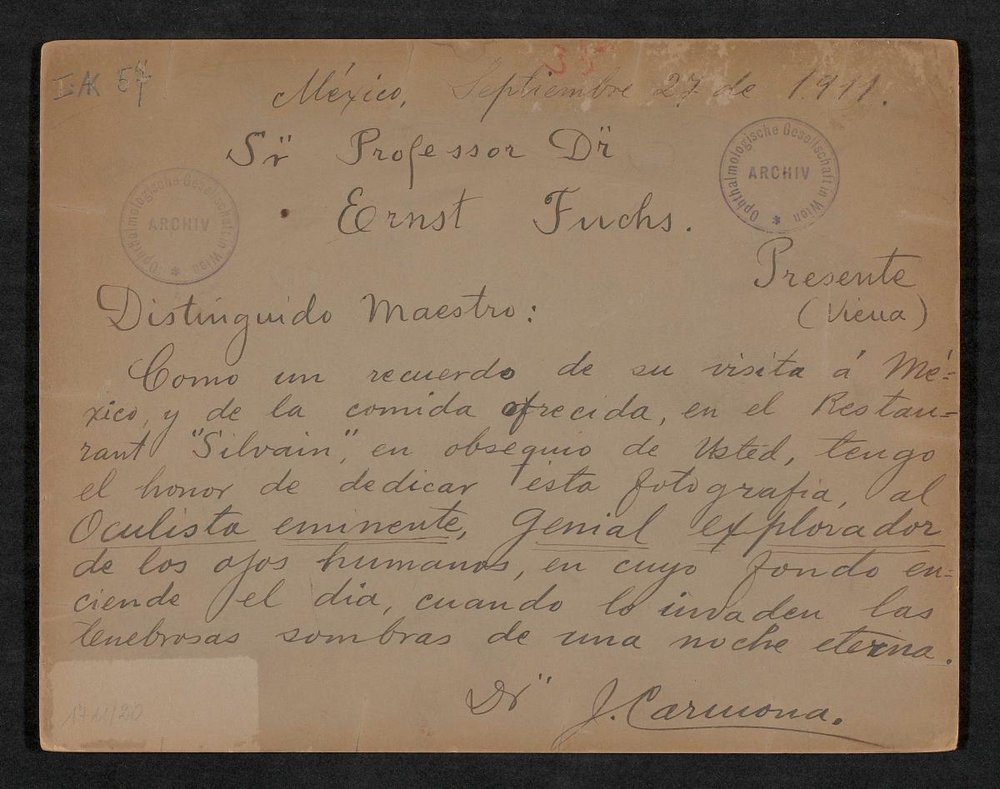 I AK 57
35
México, Septiembre 27 de 1911.
Sr Professor Dr
Ernst Fuchs.
Ophthalmologische Gesellschaft in Wien * ARCHIV
Ophthalmologische Gesellschaft in Wien * ARCHIV
Presente
(Viena)
Distinguido Maestro:
Como un recuerdo de su visita á Mé-
xico, y de la comida ofrecida, en el Restau-
rant "Silvain", en obsequio de Usted, tengo
el honor de dedicar esta fotografia, al
Oculista eminente, genial explorador
de los ojos humanos, en cuyo fondo en-
ciende el dia, cuando lo invaden las
tenebrosas sombras de una noche eterna.
Dr J. Carmona.